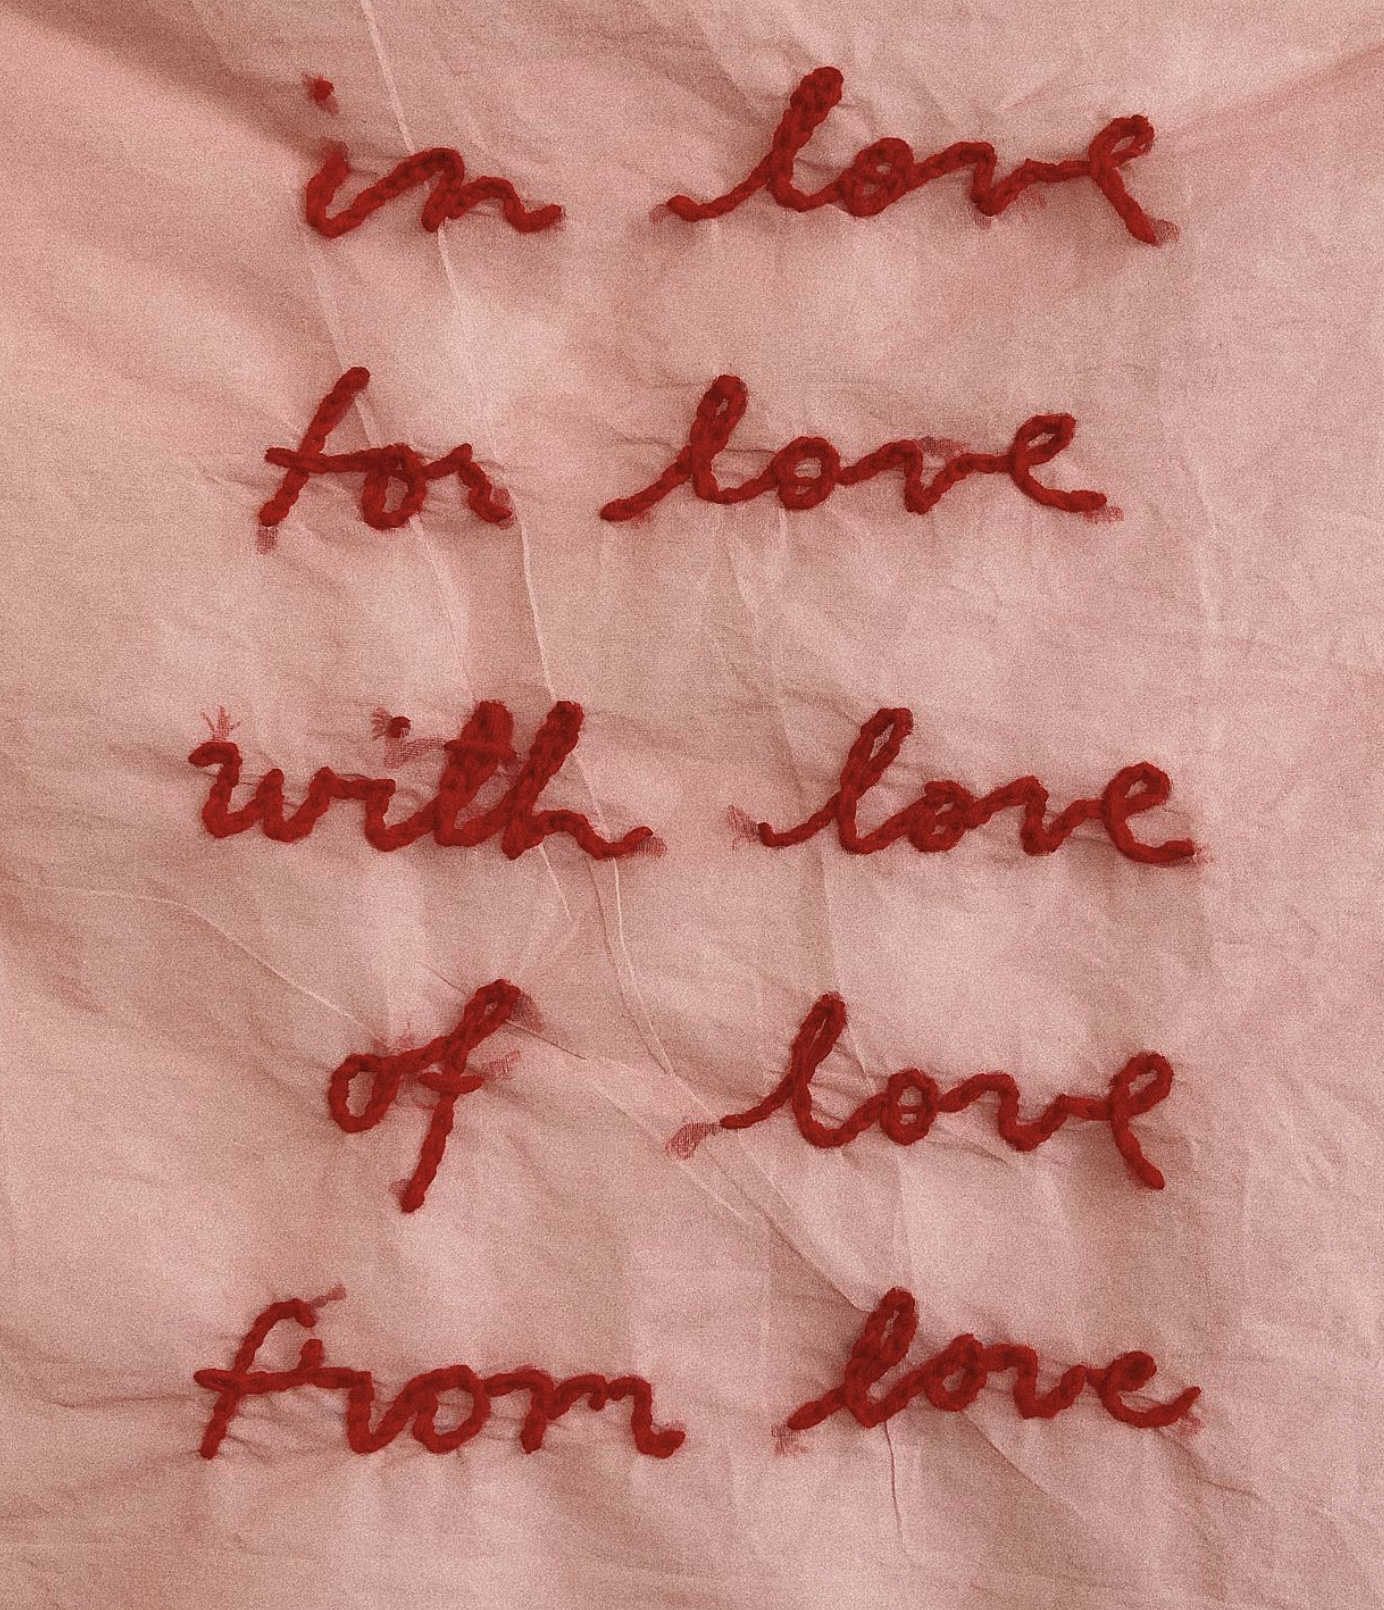 in love
for love
with love
of love
from love